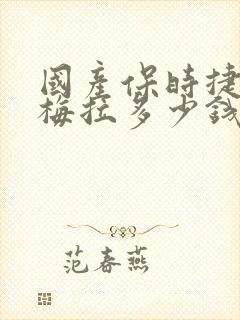 國產保時捷
梅拉多少錢
范春燕